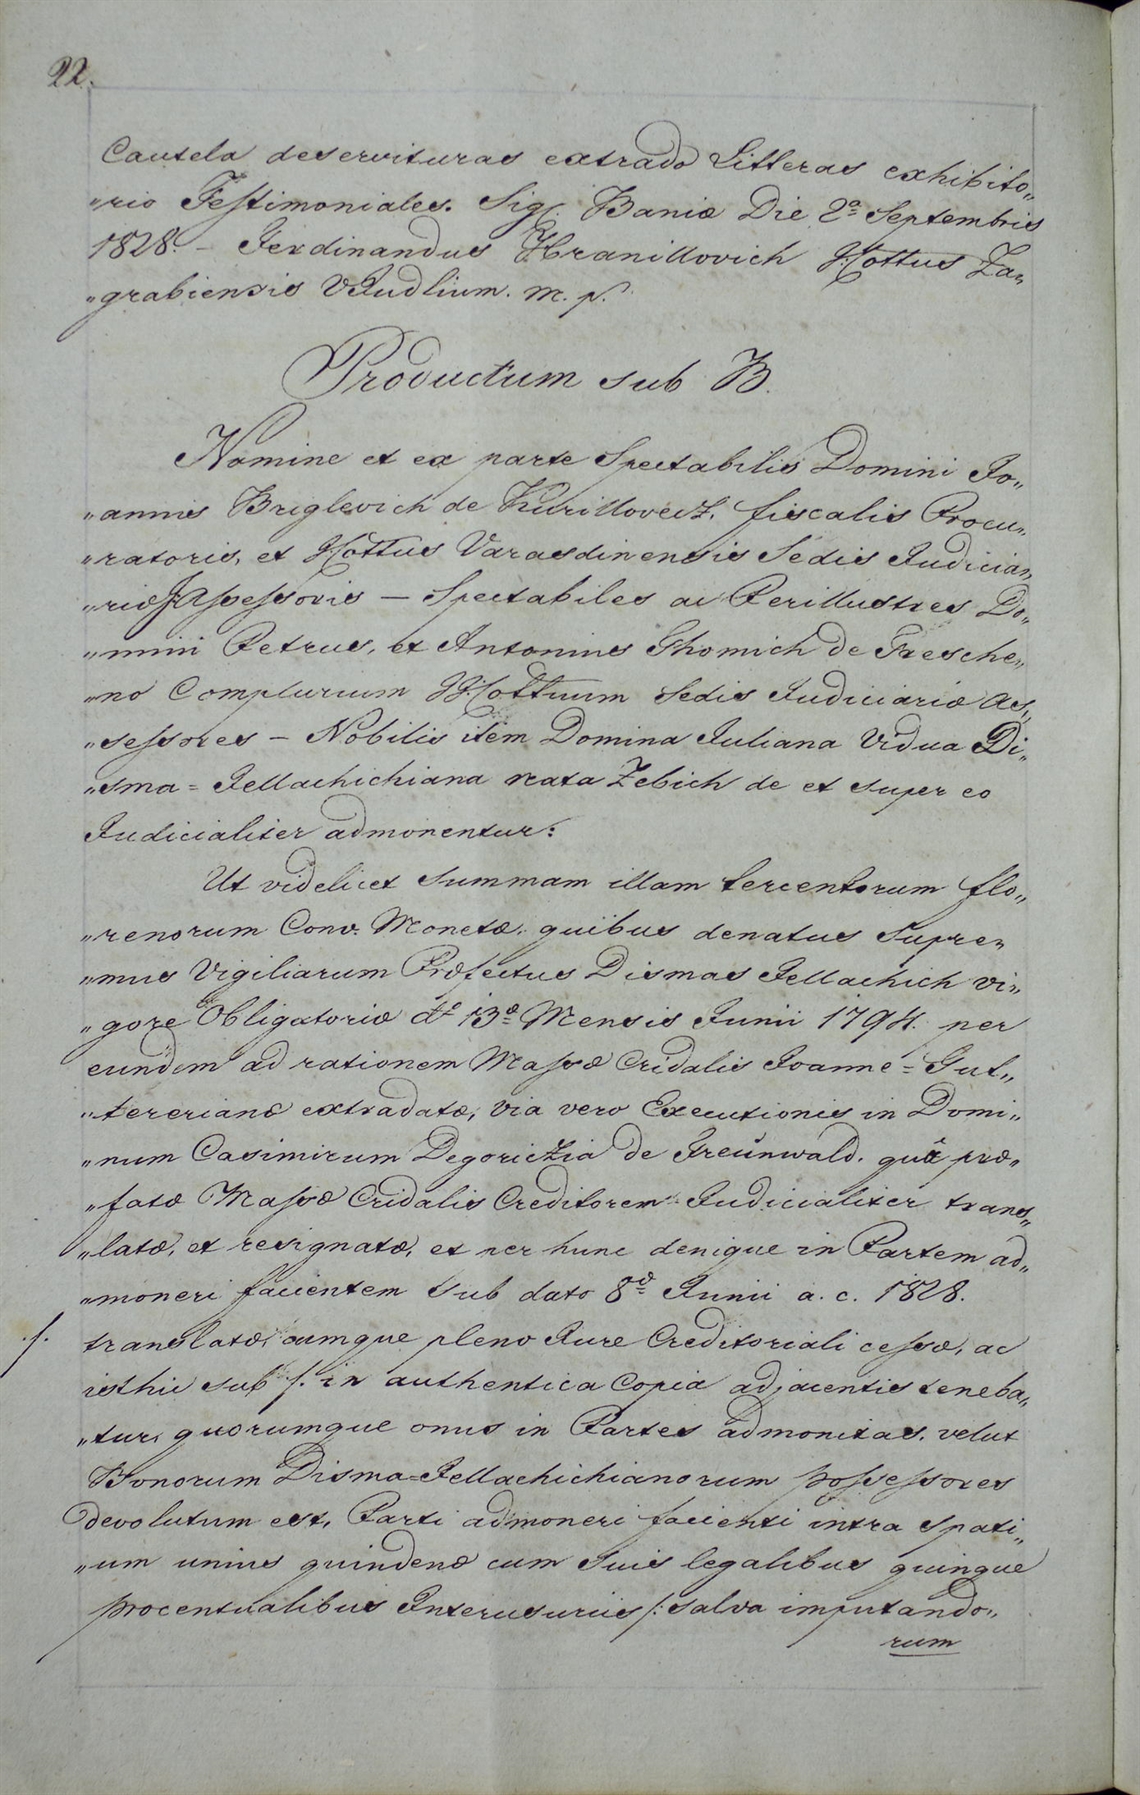 22.
Cautela deservituras extrado Litteras exhibito„
„rio Testimoniales. Sig. Baniæ Die 2ª Septembris
1828. – Ferdinandus Hranillovich Cottus Za„
„grabiensis VJudlium. m. p.
Productum sub B.
Nomine et ex parte Spectabilis Domini Jo„
„annis Briglevich de Kurillovecz, fiscalis Procu„
„ratoris, et Cottus Varasdinensis Sedis Judicia„
„riæ Assessoris – Spectabiles ac Perillustres Do„
„mini Petrus, et Antonius Chomich de Tresche„
„no Complurium Cottuum Sedis Judiciariæ As„
„sessores – Nobilis item Domina Juliana Vidua Di„
„sma = Jellachichiana nata Zebich de et super eo
Judicialiter admonentur:
Ut videlicet summam illam tercentorum flo„
„renorum Conv. Monetæ, quibus denatus Supre„
„mus Vigiliarum Præfectus Dismas Jellachich vi„
„gore Obligatoriæ dto 13æ Mensis Junii 1794. per
eundem ad rationem Massæ Cridalis Joanne = Gut„
„tererianæ extradatæ, via vero Executionis in Domi„
„num Casimirum Degoriczia de Freünwald, quâ præ„
„fatæ Massæ Cridalis Creditorem Judicialiter trans„
„latæ, et resignatæ, et per hunc denique in Partem ad„
„moneri facientem sub dato 8æ Junii a. c. 1828.
./. translatæ, cumque pleno Jure Creditoriali cessæ, ac
isthic sub ./. in authentica Copia adjacentis teneba„
„tur, quorumque onus in Partes admonitas, velut
Bonorum Disma=Jellachichianorum possessores
devolutum est, Parti admoneri facienti intra spati„
„um unius quindenæ cum suis legalibus quinque
procentualibus Interusuriis /: salva imputando„
rum